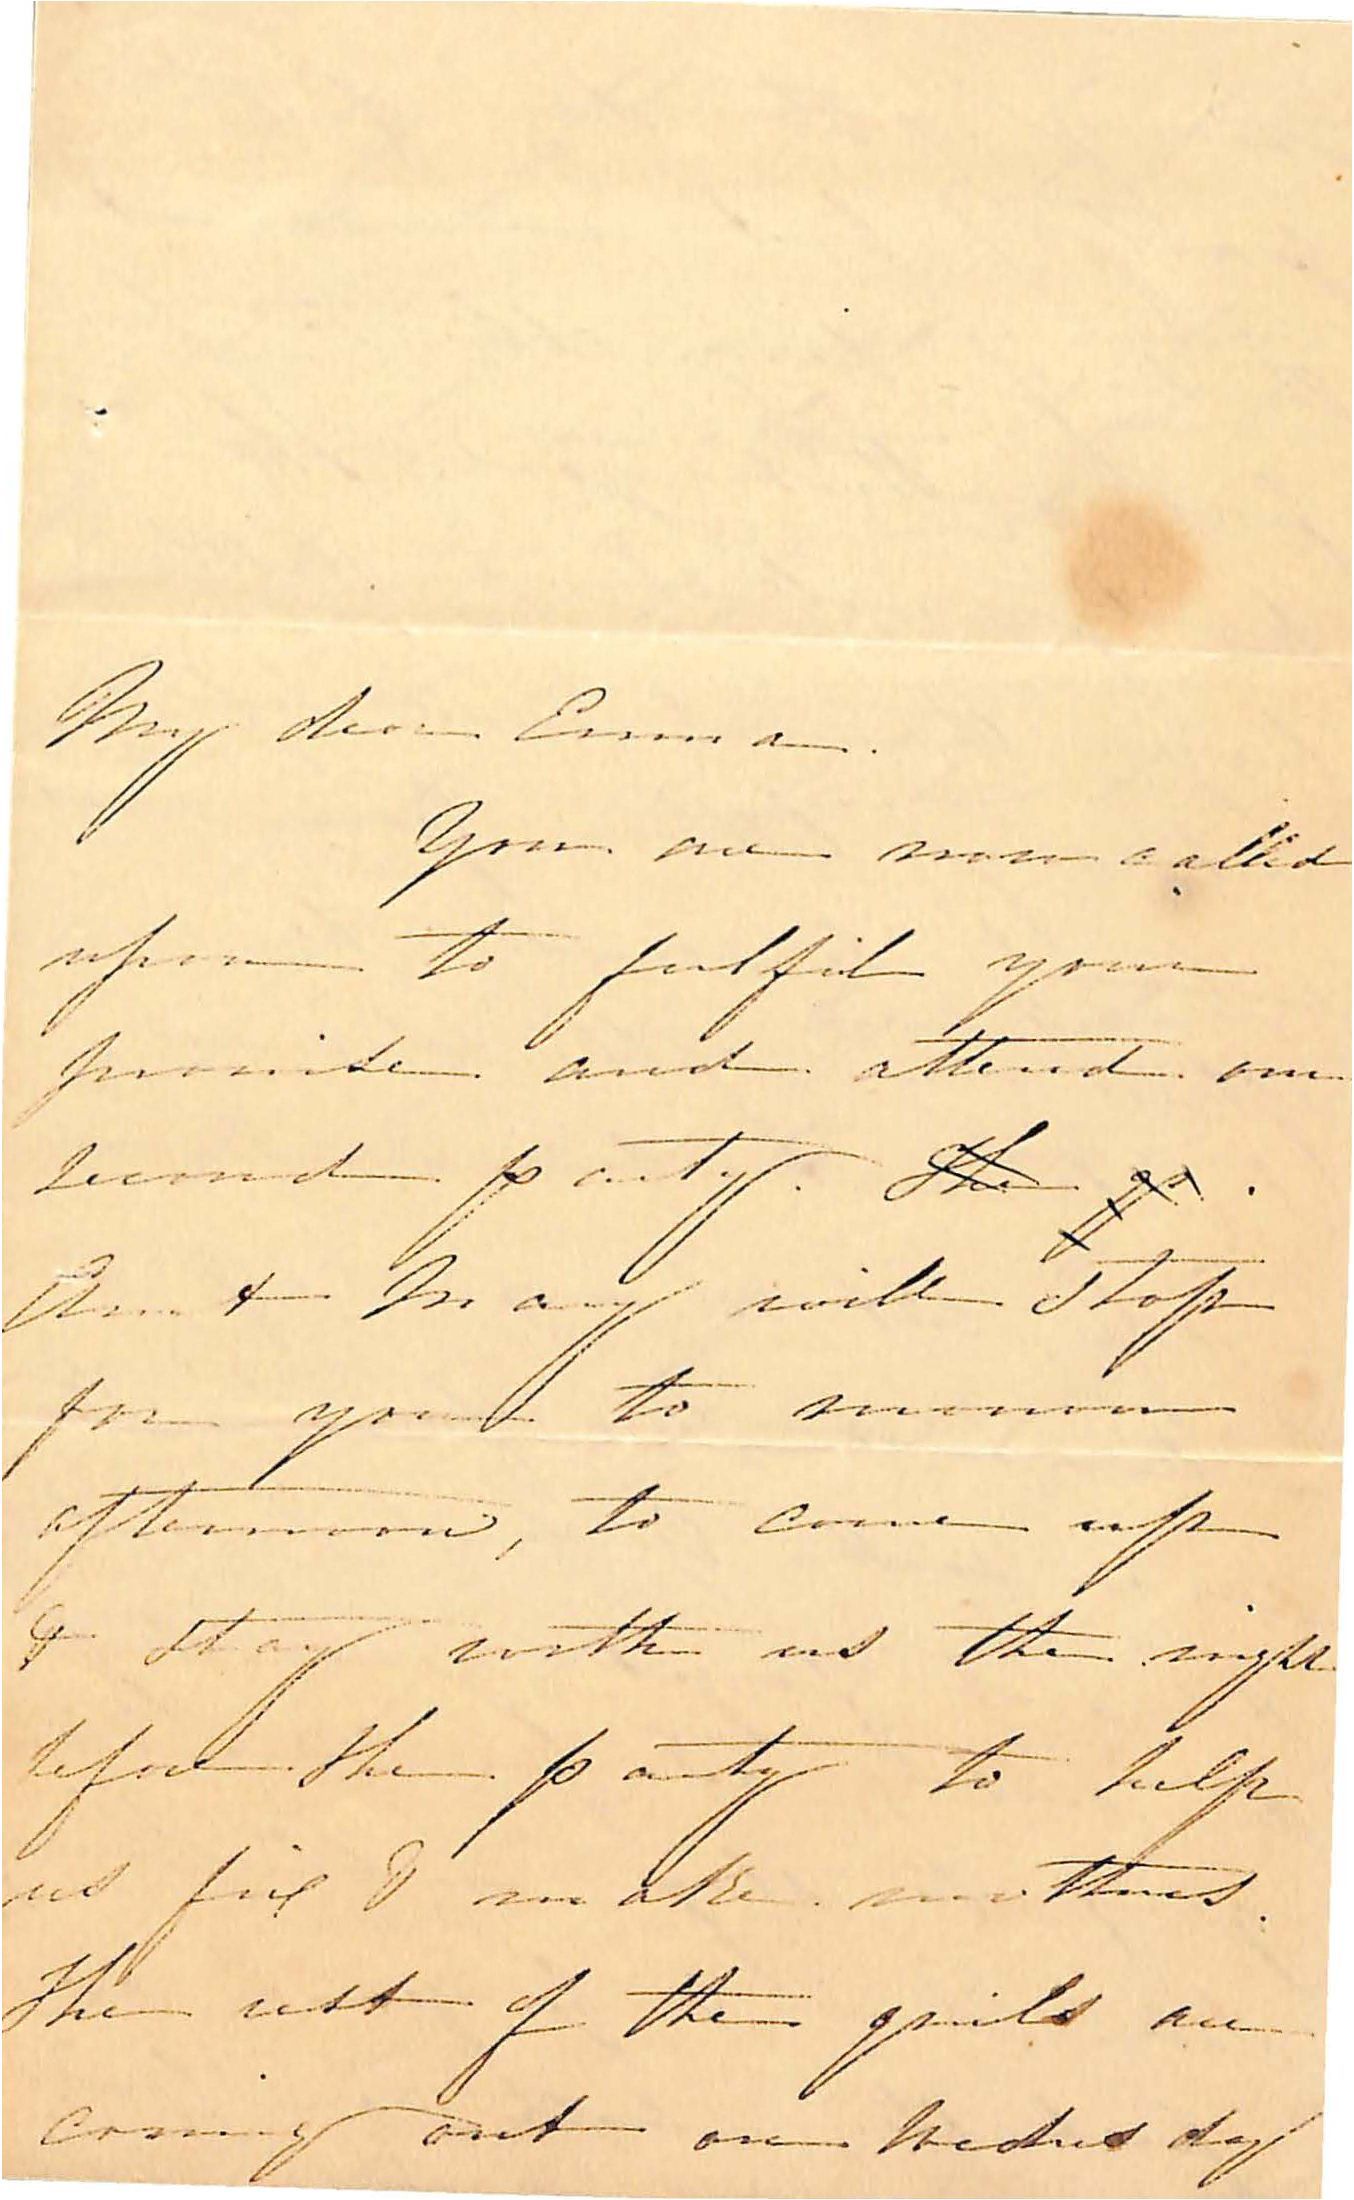 My dear Emma.
You are now called
upon to fulfil your
promise and attend our
second party. The
Aunt Mary will stop
for you to morrow
afternoon, to come up
& stay with us the night
before the party to help
us fix & make mottoes.
The rest of the girls are
coming out on Wednesday